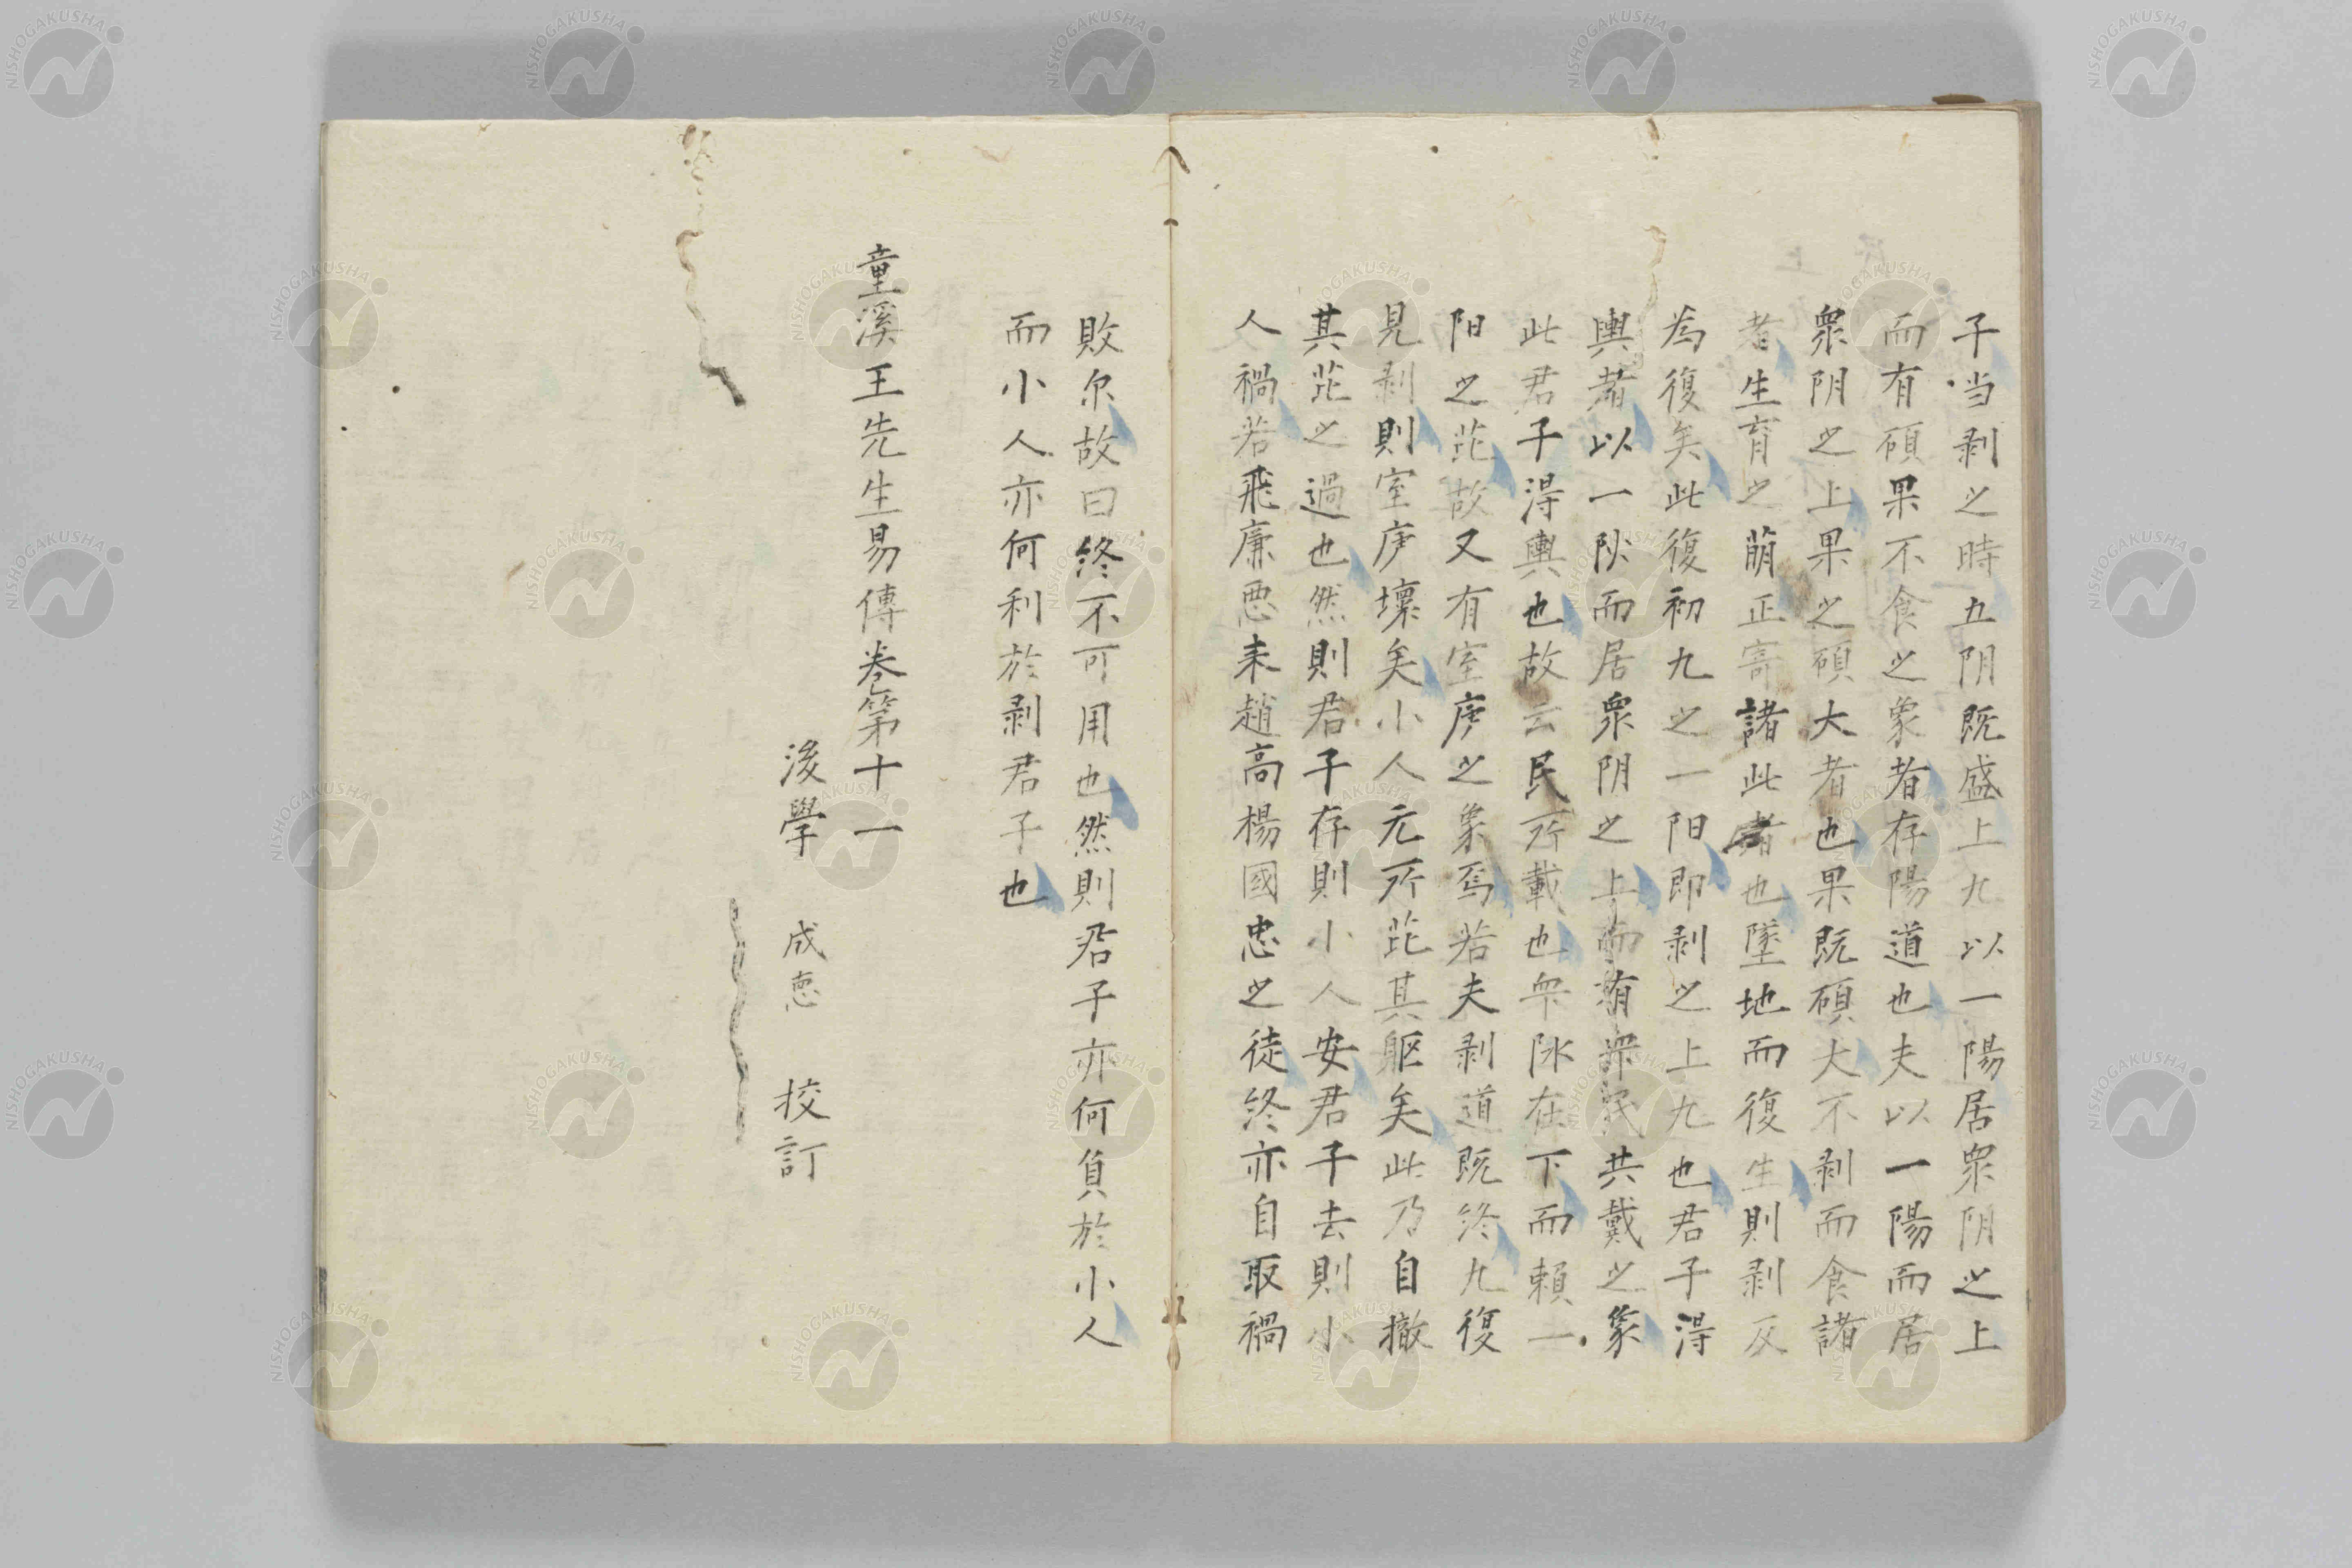 子当剥之時五阴既盛上九以一陽居衆阴之上
而有碩果不食之象者存陽道也夫以一陽而居
衆阴之上果之碩大者也果既碩大不剥而食諸
者生育之萠正寄諸此者也墜地而復生則剥反
為復矣此復初九之一阳即剥之上九也君子淂
輿者以一阦而居衆阴之上而有衆民共戴之象
此君子淂輿也故云民所載也衆阦在下而賴一
阳之茈故又有室庐之象焉若夫剥道既終九復
見剥則室庐壞矣小人无所茈其躯矣此乃自撤
其茈之過也然則君子存則小人安君子去則小
人禍若飛廉悪耒趙高楊國忠之徒終亦自取禍
敗尔故曰終不可用也然則君子亦何負於小人
而小人亦何利於剥君子也
童溪王先生易傳卷第十一
後學 成悳 挍訂
NISHOGAKUSHA